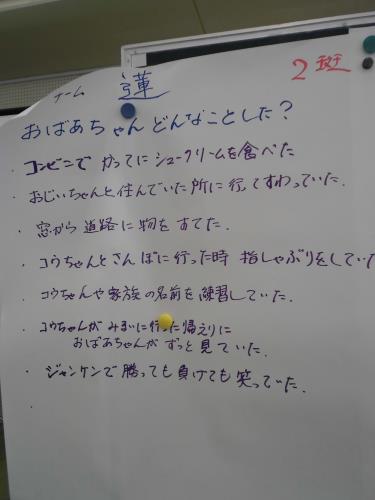 チーム 蓮
2班
おばあちゃんどんなことした?
・コンビニで かってにシュークリームを食べた
・おじいちゃんと住んでいた所に行ってすわっていた.
・窓から道路に物をすてた.
・コウちゃんとさんぽに行った時 指しゃぶりをしていた
・コウちゃんや家族の名前を練習していた.
・コウちゃんが みまいに行った帰えりに
おばあちゃんが ずっと見ていた.
・ジャンケンで勝っても負けても笑っていた.
・